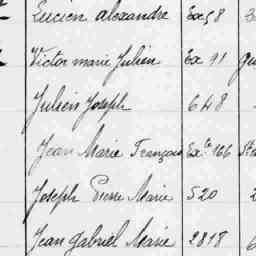 Lucien alexandre Ex 58
Victor marie Julien Ex 91
Julien Joseph 648
Jean Marie François Ex. 166
Joseph Pierre Marie 520
Jean Gabriel Marie 2818